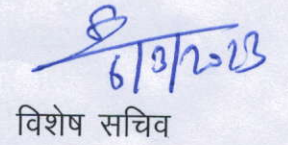 6/3/2023
विशेष सचिव